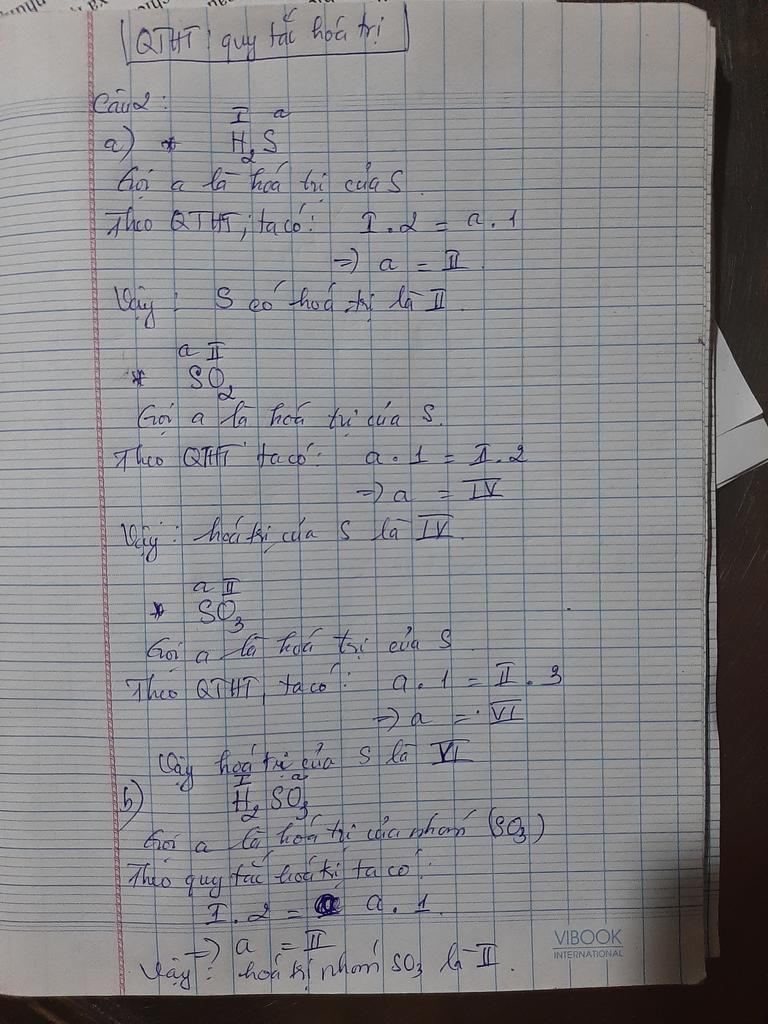 QTHT quy tắc hoá trị
Câu 2:
I a
a) * H2S
Gọi a là hoá trị của S
Theo QTHT, ta có: I . 2 = a . 1
=> a = II
Vậy: S có hoá trị là II.
a II
* SO2
Gọi a là hoá trị của S.
Theo QTHT ta có: a . 1 = II . 2
=> a = IV
Vậy: hoá trị của S là IV.
a II
* SO3
Gọi a là hoá trị của S
Theo QTHT, ta có: a . 1 = II . 3
=> a = VI
Vậy hoá trị của S là VI
I a
b) H2SO3
Gọi a là hoá trị của nhóm (SO3)
Theo quy tắc hoá trị ta có:
I . 2 = a . 1
=> a = II
Vậy: hoá trị nhóm SO3 là II.
VIBOOK
INTERNATIONAL